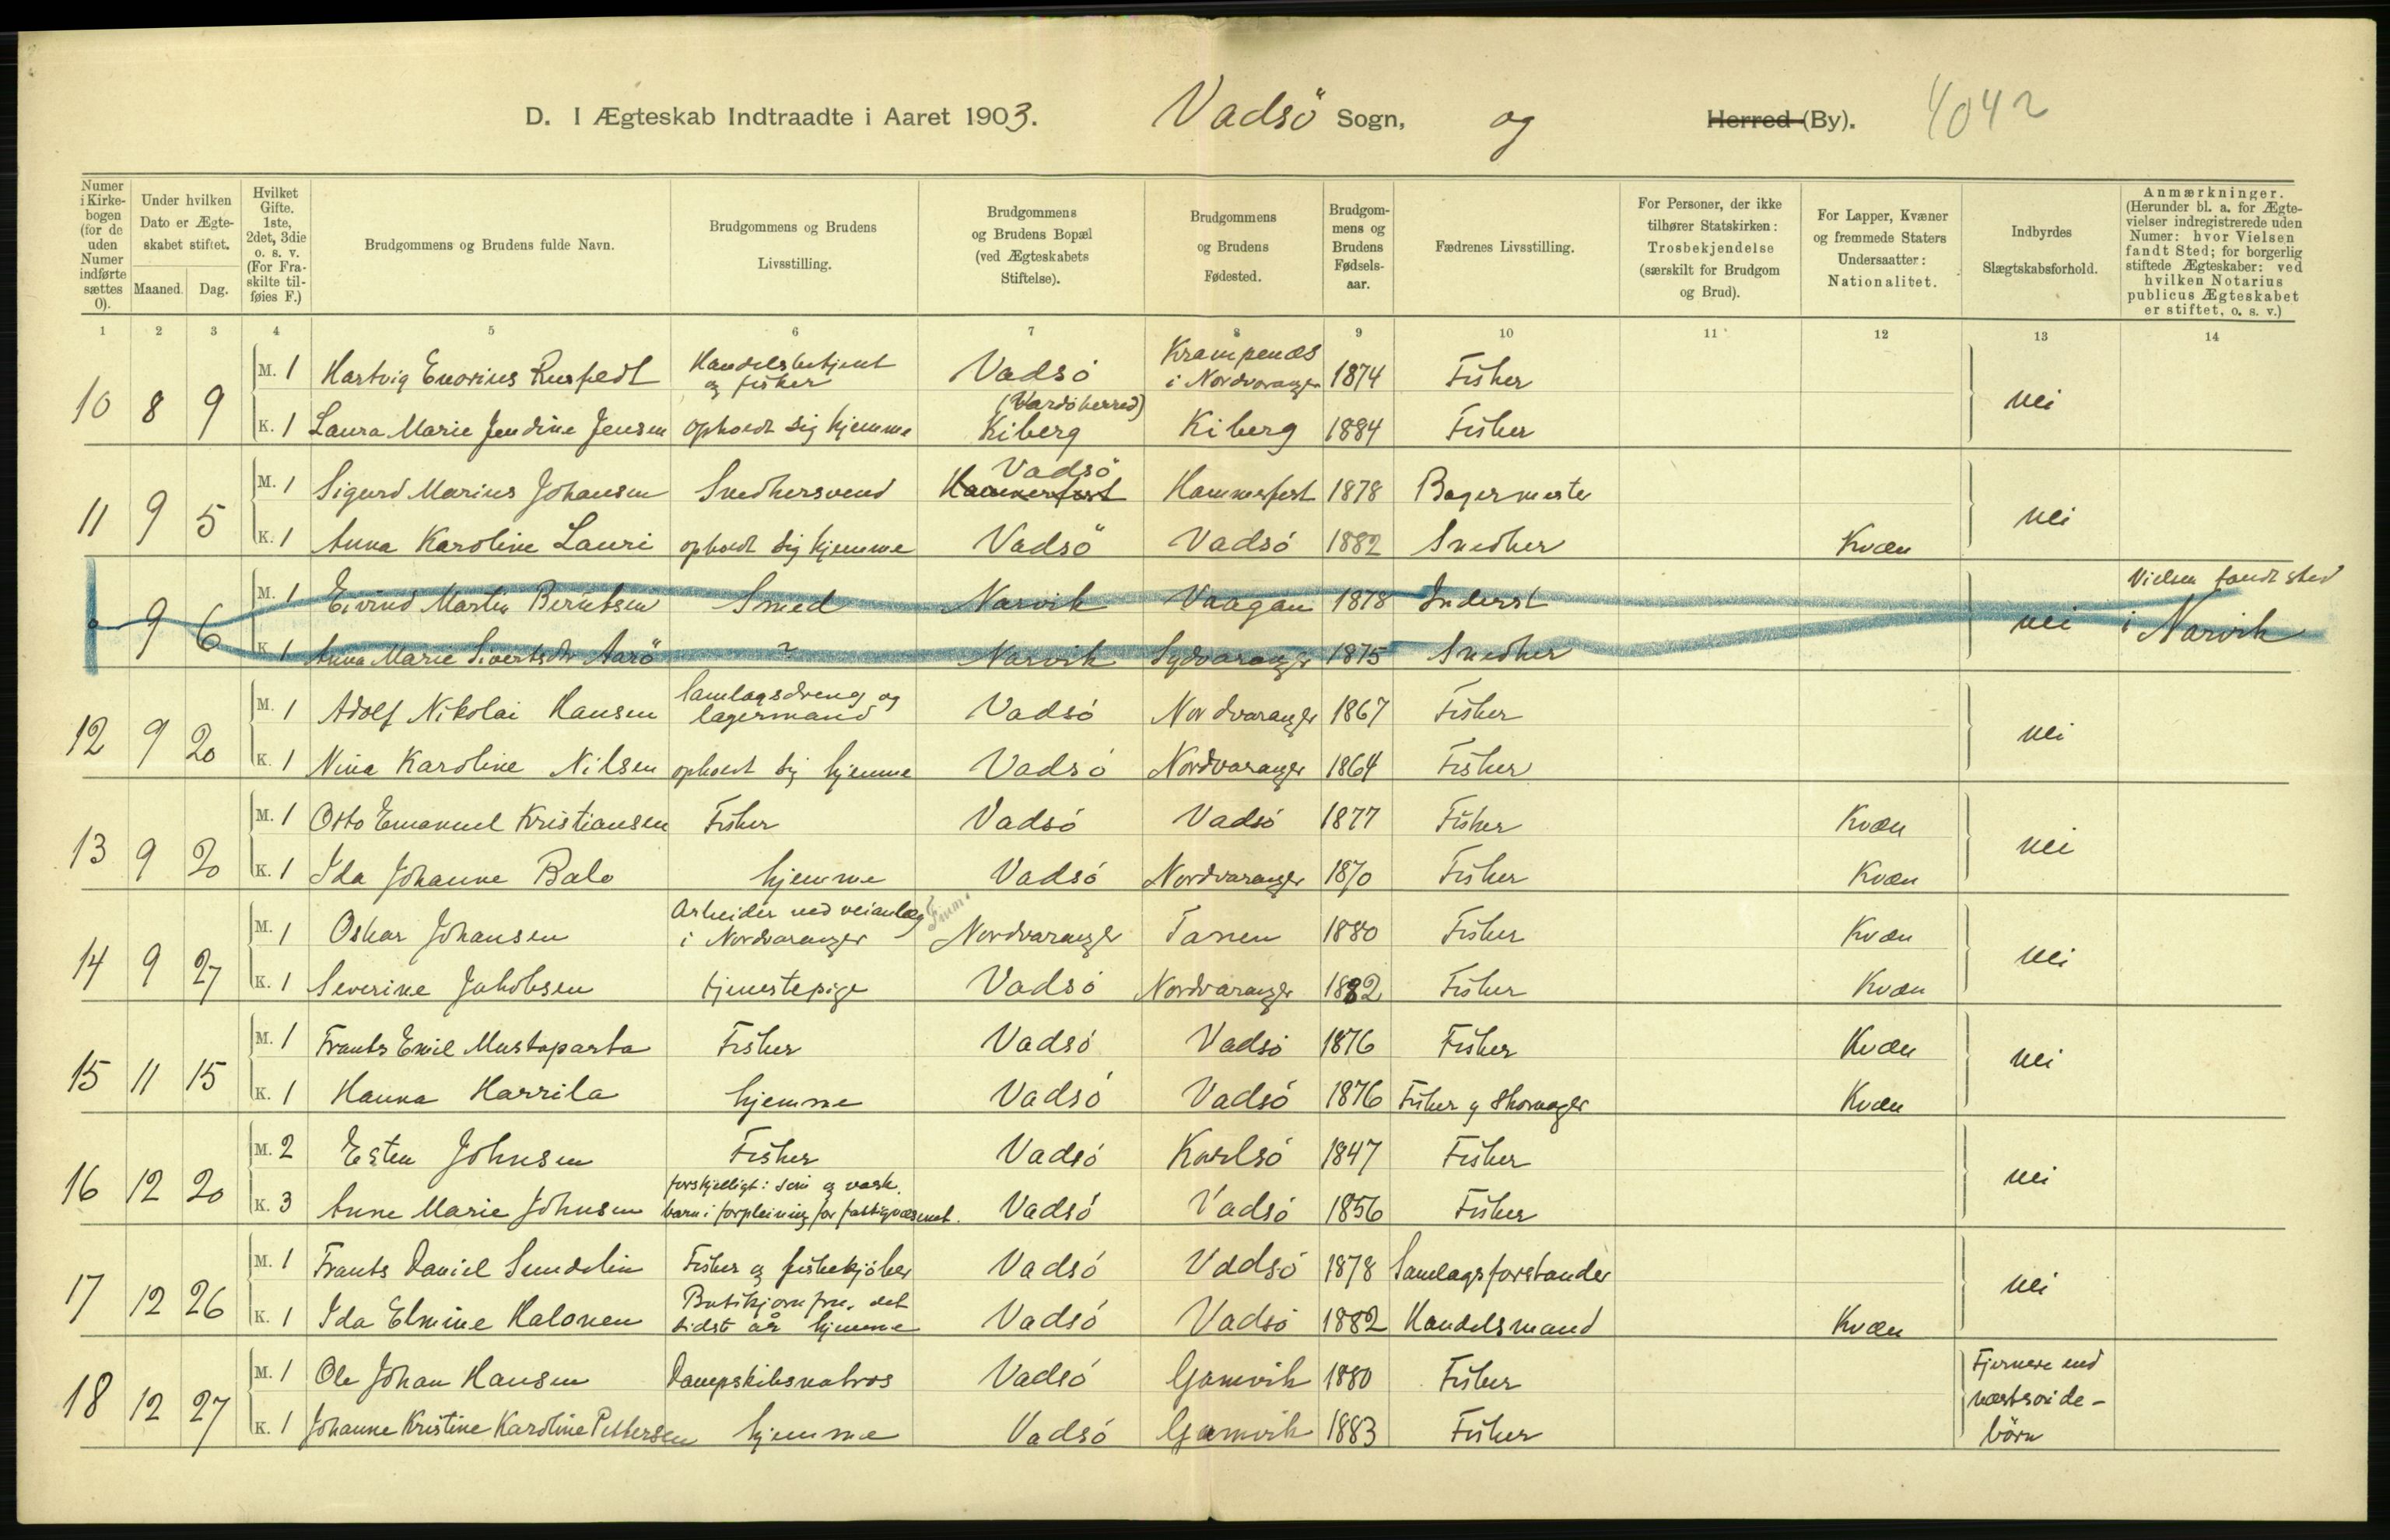 D. I Ægteskab Indtraadte i Aaret 1903. Vadsö Sogn, og Herred (By). 4042
Numer i Kirkebogen (for de uden Numer indførte sættes 0).
Under hvilken Dato er Ægteskabet stiftet.
Maaned. Dag.
Hvilket Gifte. 1ste, 2det, 3die o. s. v. (For Fraskilte tilføies F.)
Brudgommens og Brudens fulde Navn.
Brudgommens og Brudens Livsstilling.
Brudgommens og Brudens Bopæl (ved Ægteskabets Stiftelse).
Brudgommens og Brudens Fødested.
Brudgommens og Brudens Fødselsaar.
Fædrenes Livsstilling.
For Personer, der ikke tilhører Statskirken: Trosbekjendelse (særskilt for Brudgom og Brud).
For Lapper, Kvæner og fremmede Staters Undersaatter: Nationalitet.
Indbyrdes Slægtskabsforhold.
Anmærkninger. (Herunder bl. a. for Ægtevielser indregistrerede uden Numer: hvor Vielsen fandt Sted; for borgerlig stiftede Ægteskaber: ved hvilken Notarius publicus Ægteskabet er stiftet, o. s. v.)
1 2 3 4 5 6 7 8 9 10 11 12 13 14
10 8 9 M. 1 Hartvig Enorius Rusfedt Handelsbetjent og fisker Vadsö Krampenæs i Nordvaranger 1874 Fisker nei
K. 1 Laura Marie Jendine Jensen opholdt sig hjemme (Vardöherred) Kiberg Kiberg 1884 Fisker
11 9 5 M. 1 Sigurd Marius Johansen Snedkersvend Vadsö Hammerfest Hammerfest 1878 Bagermester nei
K. 1 Anna Karoline Lauri opholdt sig hjemme Vadsö Vadsö 1882 Snedker Kvæn
0 9 6 M. 1 Eivind Martin Berntsen Smed Narvik Vaagan 1878 Inderst nei Vielsen fandt sted i Narvik
K. 1 Anna Marie Sivertsdtr Aarö ~ Narvik Sydvaranger 1875 Snedker
12 9 20 M. 1 Adolf Nikolai Hansen Samlagsdreng og lagermand Vadsö Nordvaranger 1867 Fisker nei
K. 1 Nina Karoline Nilsen opholdt sig hjemme Vadsö Nordvaranger 1864 Fisker
13 9 20 M. 1 Otto Emanuel Kristiansen Fisker Vadsö Vadsö 1877 Fisker Kvæn nei
K. 1 Ida Johanne Balo hjemme Vadsö Nordvaranger 1870 Fisker Kvæn
14 9 27 M. 1 Oskar Johansen Arbeider ved veianlæg i Nordvaranger Finm. Nordvaranger Tanen 1880 Fisker Kvæn nei
K. 1 Severine Jakobsen tjenestepige Vadsö Nordvaranger 1882 Fisker Kvæn
15 11 15 M. 1 Frants Emil Mustaparta Fisker Vadsö Vadsö 1876 Fisker Kvæn nei
K. 1 Hanna Harrila hjemme Vadsö Vadsö 1876 Fisker og skomager Kvæn
16 12 20 M. 2 Esten Johnsen Fisker Vadsö Karlsö 1847 Fisker nei
K. 3 Anne Marie Johnsen forskjelligt: söm og vask. barn i forpleining for fattigvæsenet. Vadsö Vadsö 1856 Fisker
17 12 26 M. 1 Frants Daniel Sundelin Fisker og fiskekjöber Vadsö Vadsö 1878 Samlagsforstander nei
K. 1 Ida Elmine Halonen Butikjomfru, det sidst år hjemme Vadsö Vadsö 1882 Handelsmand Kvæn
18 12 27 M. 1 Ole Johan Hansen Dampskibsmatros Vadsö Gamvik 1880 Fisker Fjernere end næstsöidebörn
K. 1 Johanne Kristine Karoline Pettersen hjemme Vadsö Gamvik 1883 Fisker